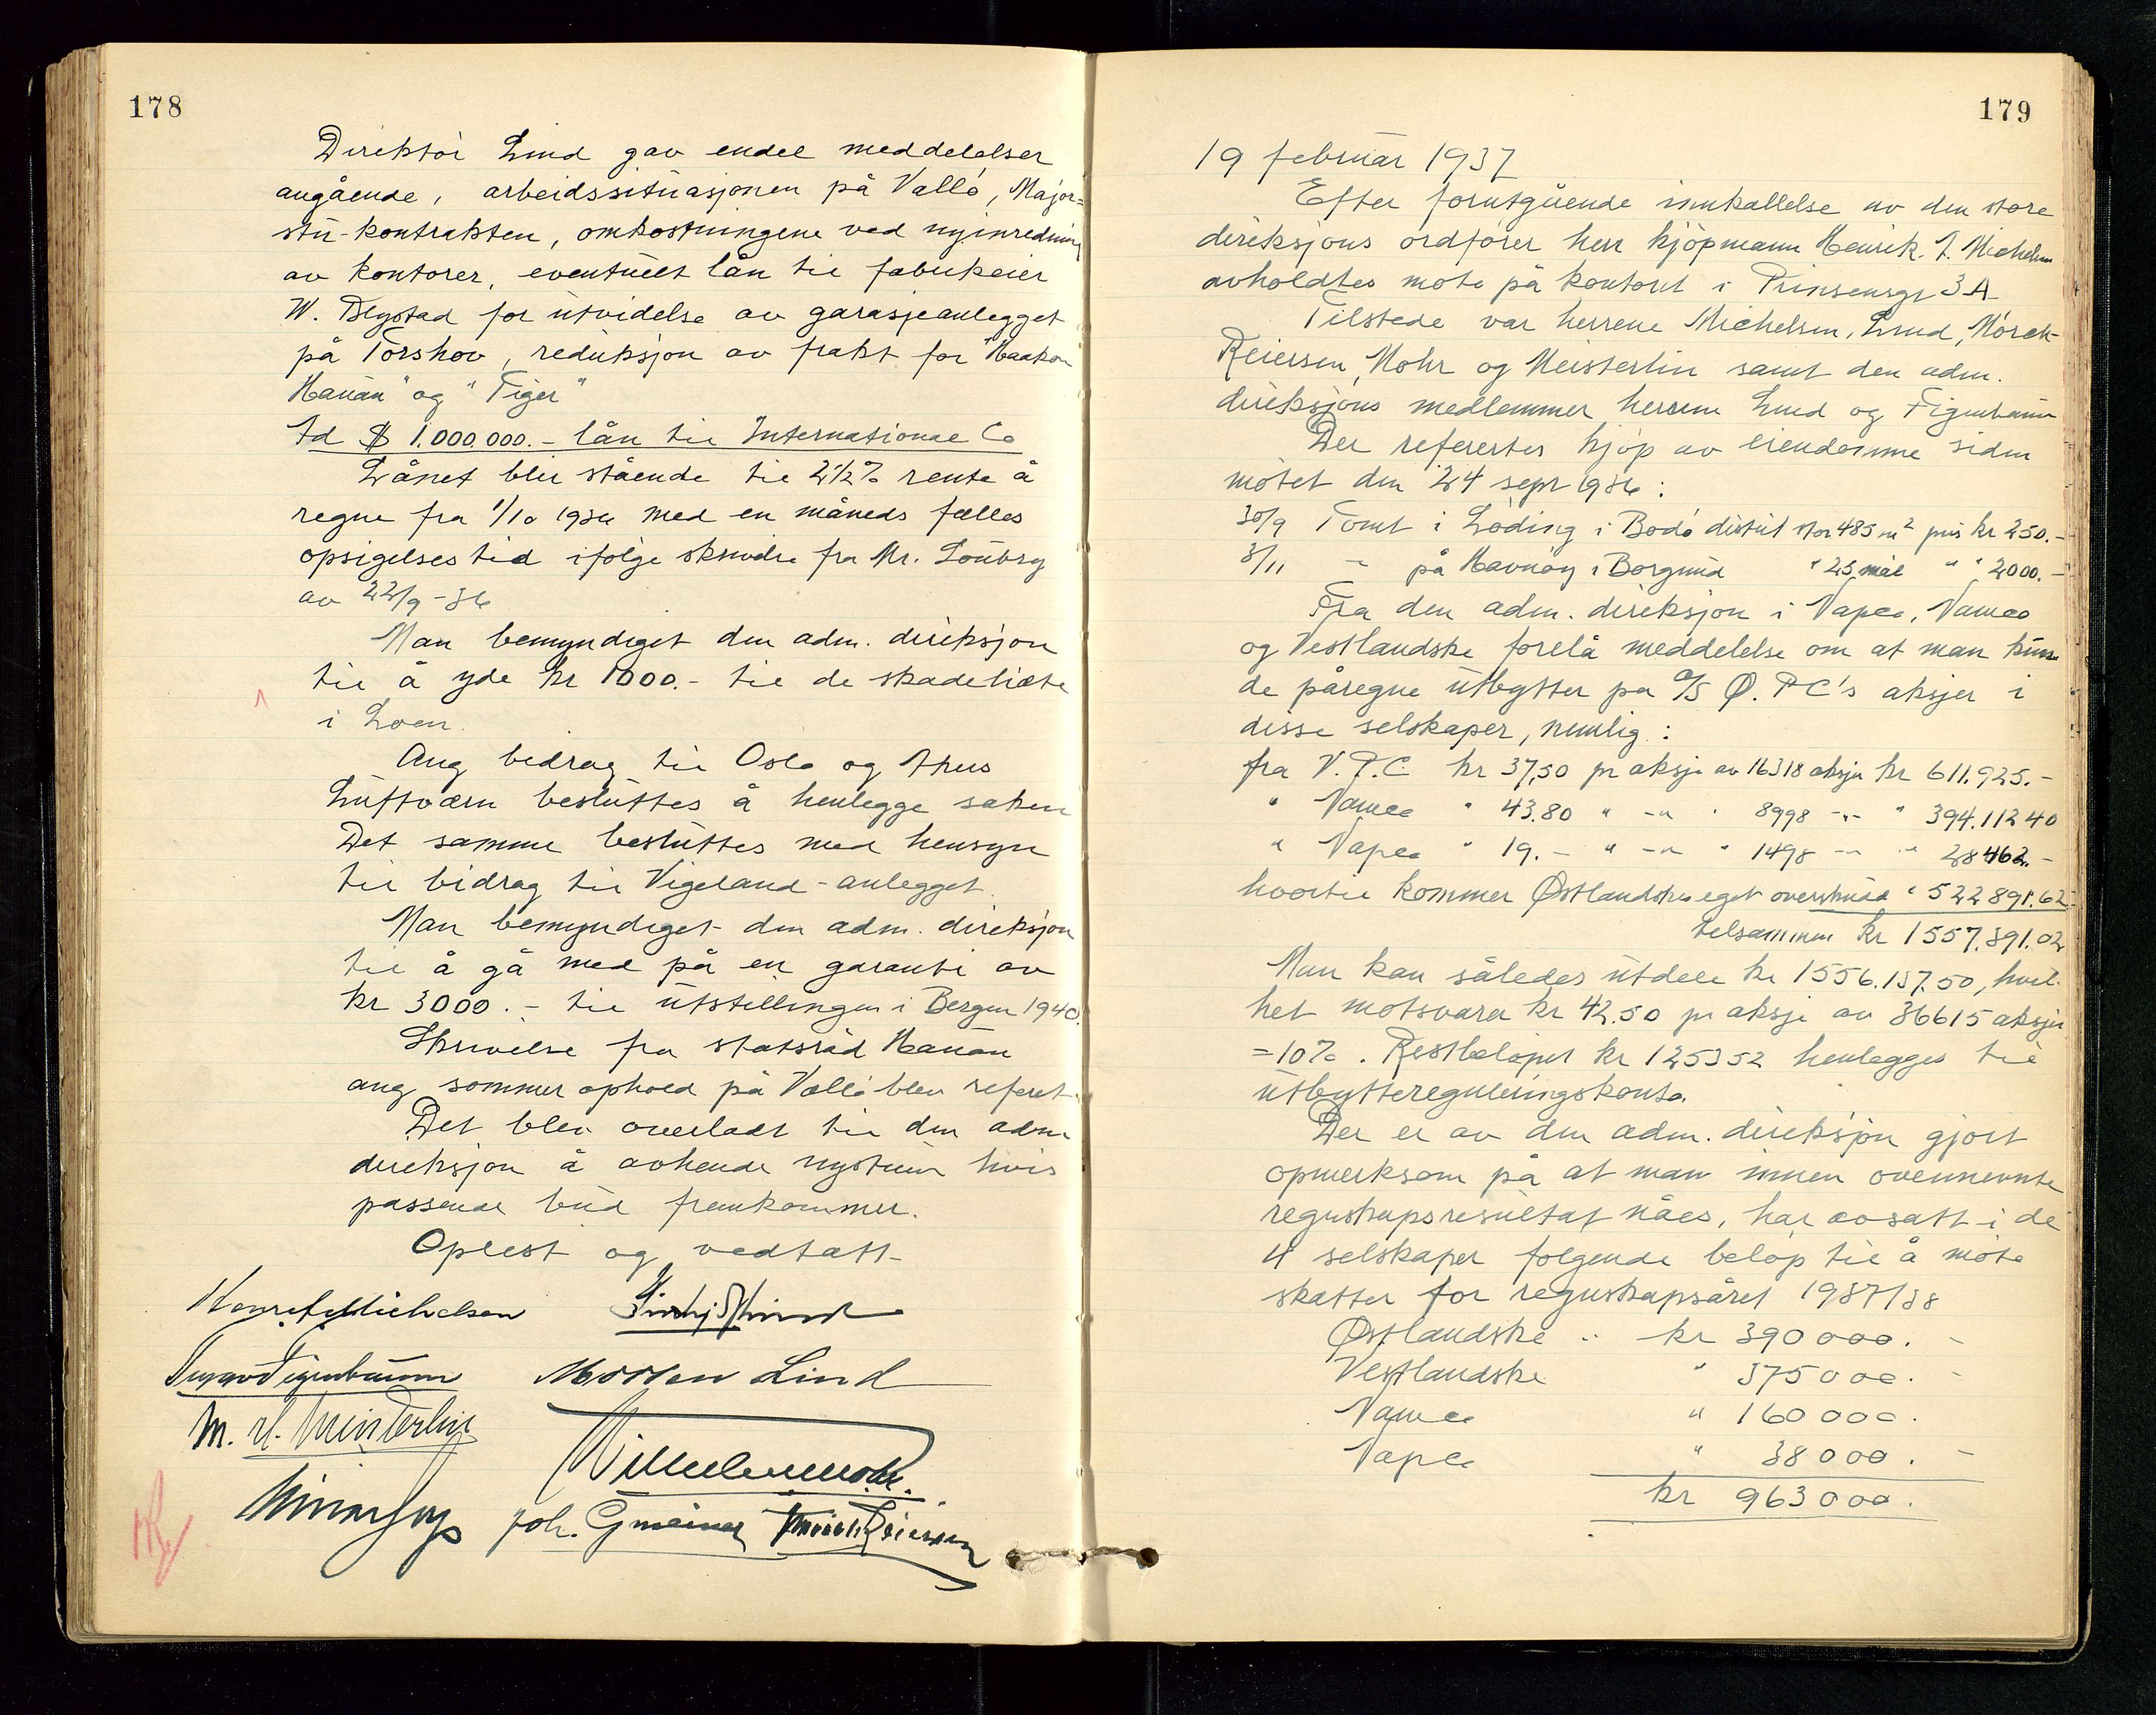 178
Direktør Lind gav endel meddelelser
angående, arbeidssituasjonen på Vallø, Major-
stu-kontrakten, omkostningene ved nyinredning
av kontorer, eventuelt lån til fabrikeier
W. Blystad for utvidelse av garasjeanlegget
på Torshov, reduksjon av frakt for "Haakon
Hauan" og "Tiger"
Ad $ 1.000.000.- lån til International Co
Lånet blir stående til 2 1/2 % rente å
regne fra 1/10 1936 med en måneds felles
opsigelsestid ifølge skrivelse fra Mr.
av 22/9-36
Man bemyndiget den adm. direksjon
til å yde kr 1000.- til de skadelidte
i Loen.
Ang bidrag til Oslo og Akers
Luftvern besluttes å henlegge saken
Det samme besluttes med hensyn
til bidrag til Vigeland-anlegget.
Man bemyndiget den adm. direksjon
til å gå med på en garanti av
kr 3000.- til utstillingen i Bergen 1940.
Skrivelse fra statsråd Hauan
ang sommerophold på Vallø blev referet.
Det blev overladt til den adm
direksjon å avhende rystum hvis
passende bud fremkommer.
Oplest og vedtatt
Henrik J Michelsen
Gunnar Figenbaum Morten Lind
M. H. Meisterlin
Wilhelm Mohr.
Joh. Gmeiner Mørch Reiersen
179
19 februar 1937
Efter forutgående innkallelse av den store
direksjons ordfører herr kjøpmann Henrik J. Michelsen
avholdtes møte på kontoret i Prinsensgt 3A
Tilstede var herrene Michelsen, Lind, Mørch-
Reiersen, Mohr og Meisterlin samt den adm.
direksjons medlemmer herrene Lind og Figenbaum
Der refererter kjøp av eiendomme siden
møtet den 24 sept 1936:
30/9 Tomt i Løding i Bodø distrikt stor 485 m² pris kr 250.-
3/11 - på Havnøy i Borgund " 23 mål " " 2000.-
Fra den adm. direksjon i Vapco, Namco
og Vestlandske forelå meddelelse om at man kun-
de påregne utbytter på A/S Ø.P.C's aksjer i
disse selskaper, nemlig:
fra V.P.C. kr 37,50 pr aksje av 16318 aksjer kr 611.925.-
" Namco " 43.80 " -"- " 8998 -"- " 394.112 40
" Napco " 19.- " -"- " 1498 -"- " 28462.-
hvortil kommer Østlandskes eget overskudd " 522891.62
tilsammen kr 1557.391.02
Man kan således utdele kr 1556.137.50, hvil-
ket motsvarer kr 42.50 pr aksje av 36615 aksjer
=10%. Restbeløpet kr 1253 52 henlegges til
utbyttereguleringskonto.
Der er av den adm. direksjon gjort
opmerksom på at man innen ovennevnte
regnskapsresultat nåes, har avsatt i de
4 selskaper følgende beløp til å møte
skatter for regnskapsåret 1937/38
Østlandske .. kr 390000.-
Vestlandske " 375000.-
Namco " 160000.
Napco " 38000.-
kr 963000.